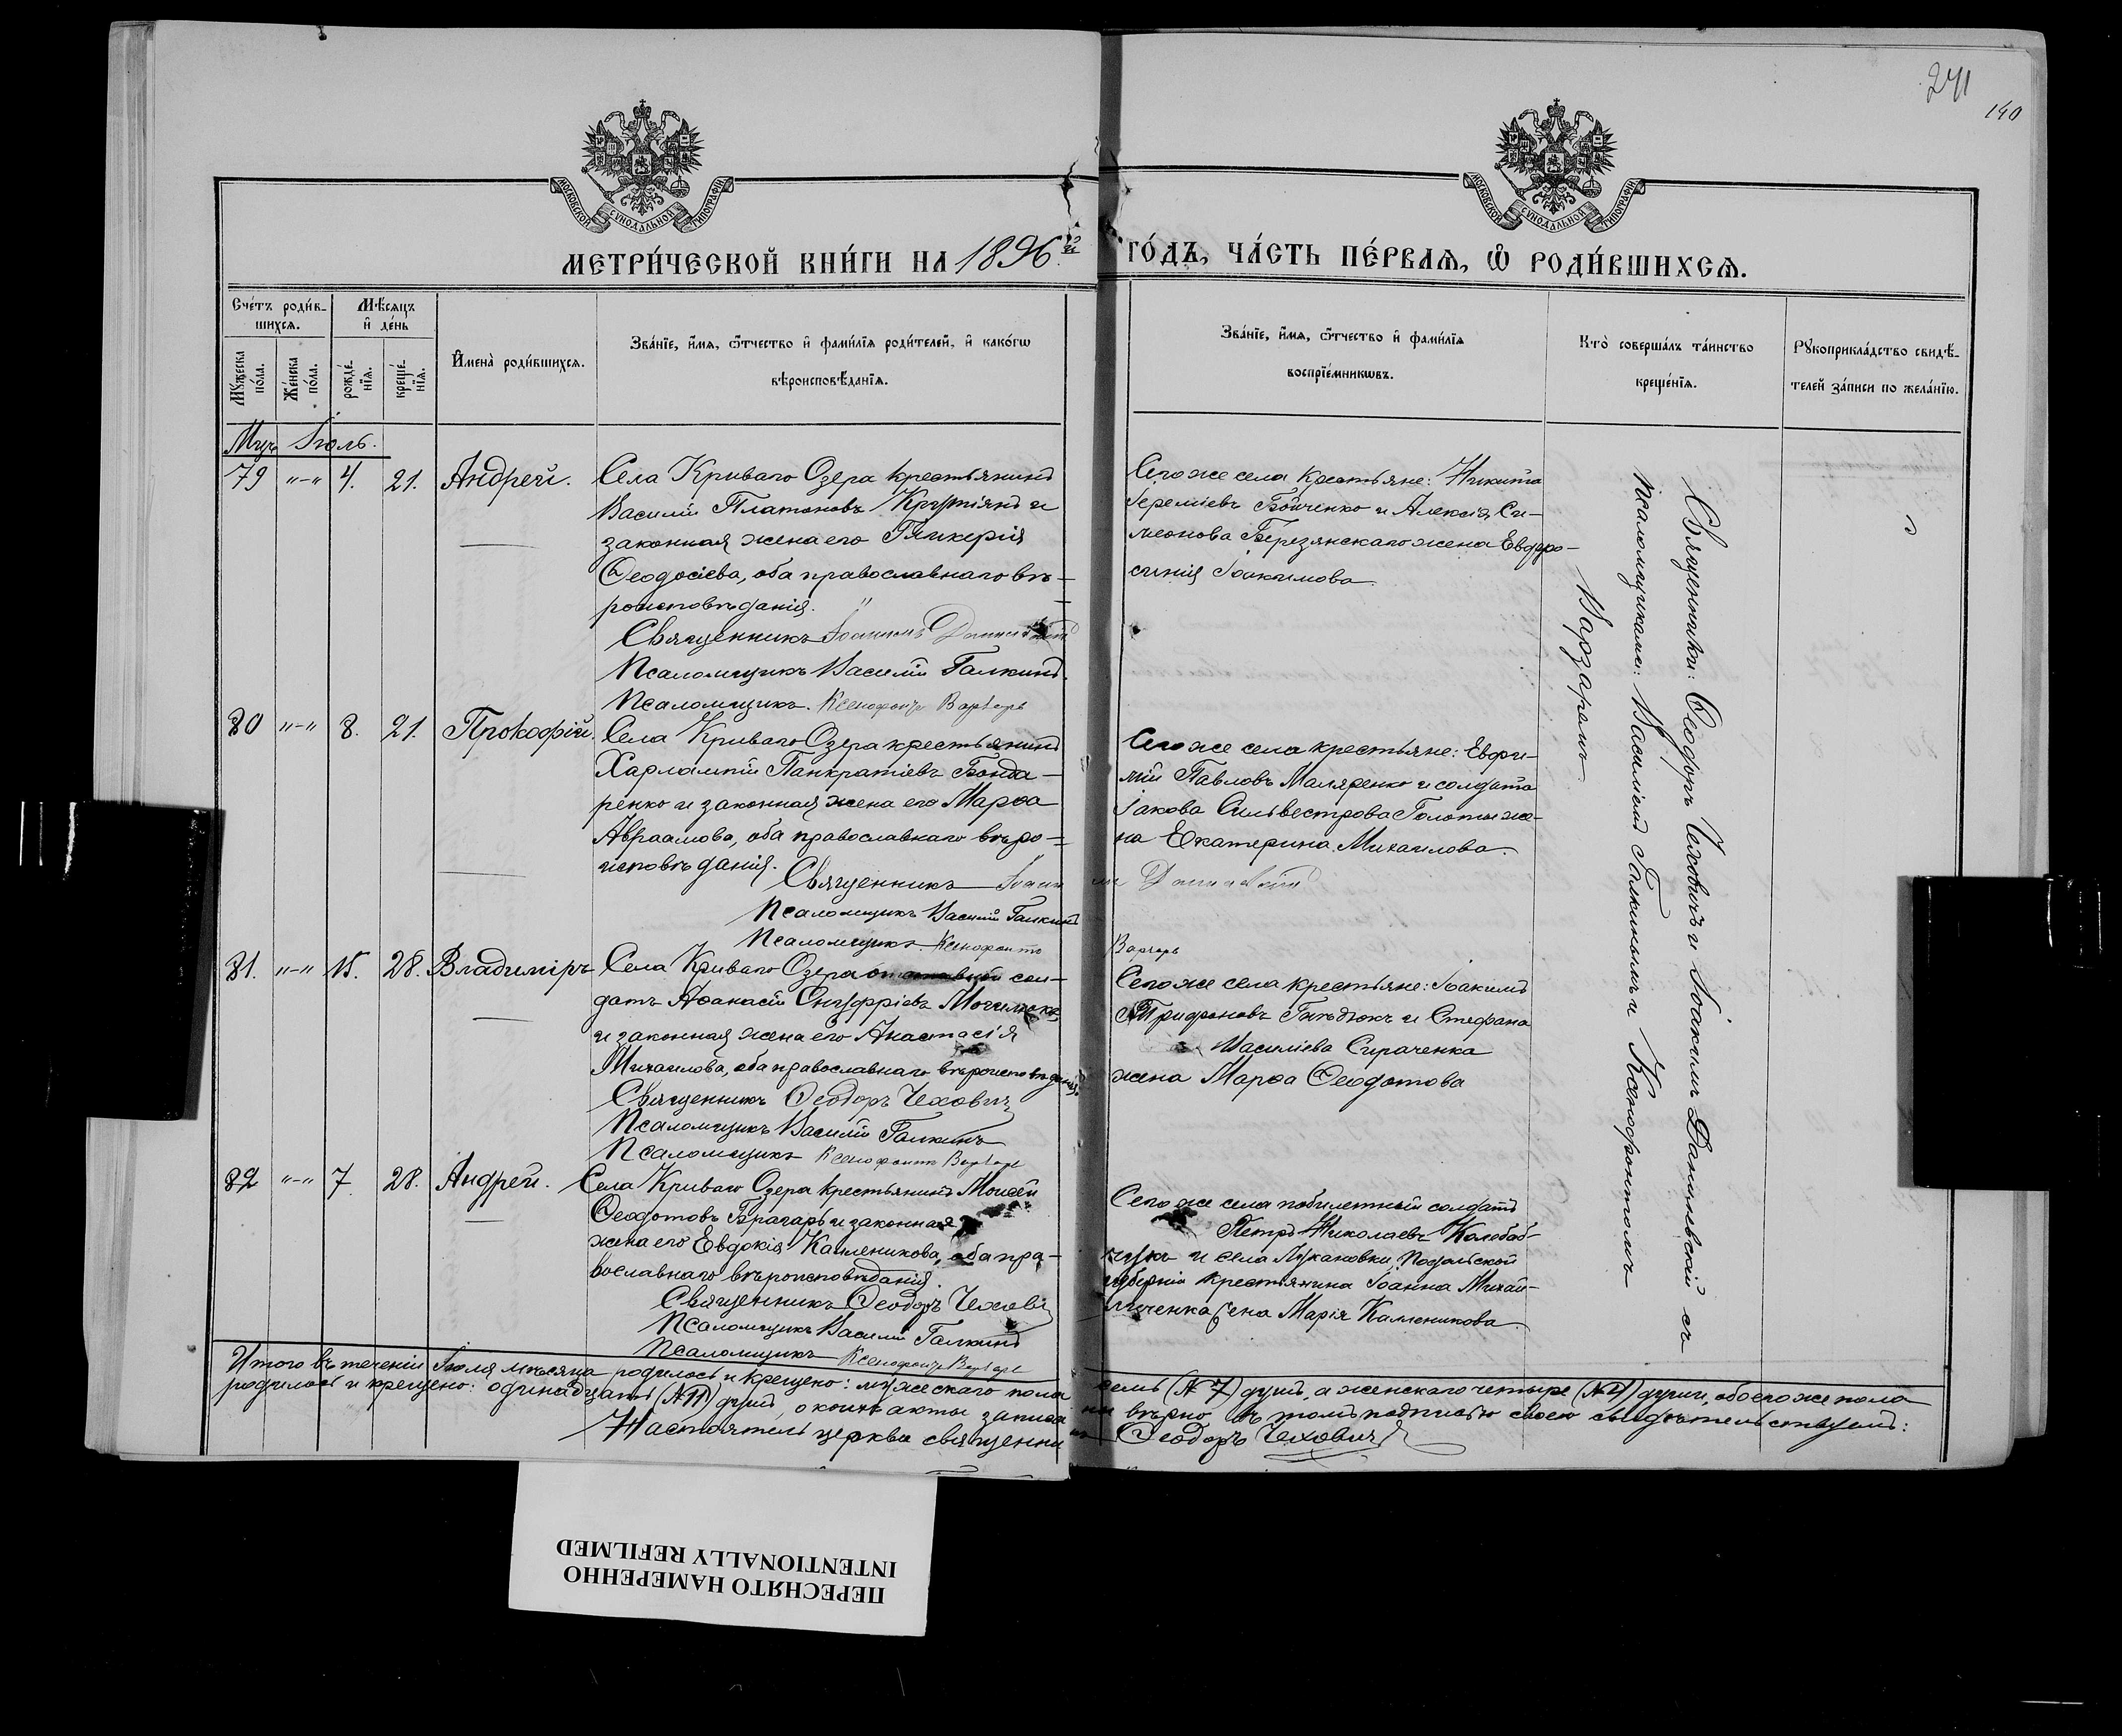 241
140
МОСКОВСКОЙ СУНОДАЛЬНОЙ ТИПОГРАФІИ
МОСКОВСКОЙ СУНОДАЛЬНОЙ ТИПОГРАФІИ
МЕТРИ́ЧЕСКОЙ КНИ́ГИ НА 1896й ГО́ДЪ, ЧА́СТЬ ПЕ́РВАЯ, Ѽ РОДИ́ВШИХСѦ.
Сче́тъ роди́в-
шихсѧ.
Мѣ́сяцъ
и҆ де́нь
Мꙋ́жеска по́ла.
Же́нска по́ла.
рожде́нїѧ.
креще́нїѧ.
И҆мена̀ роди́вшихсѧ.
Зва́нїе, и҆́мѧ, ѻ҆́тчество и҆ фами́лїѧ роди́телей, и҆ како́гѡ
вѣроисповѣ́данїѧ.
Зва́нїе, и҆́мѧ, ѻ҆́тчество и҆ фами́лїѧ
воспрїе́мникѡвъ.
Кто̀ соверша́лъ та́инство
креще́нїѧ.
Рꙋкоприкла́дство свидѣ́-
телей за́писи по жела́нїю.
Мцъ Іюль.
79 "-" 4. 21. Андрей.
Села Криваго Озера крестьянинъ
Василій Платоновъ и
законная жена его Гликерія
Ѳеодосіева, оба православнаго вѣ-
роисповѣданія.
Священникъ Іоакимъ
Псаломщикъ Василій Галкинъ.
Псаломщикъ Ксенофонтъ
Сего же села крестьяне: Никита
Іереміевъ Бойченко и Алексія Си-
меонова Березянскаго жена Евфро-
синія Іоакимова
80 "-" 8. 21. Прокофій.
Села Криваго Озера крестьянинъ
Харлампій Панкратіевъ Бонда-
ренко и законная жена его Марѳа
Авраамова, оба православнаго вѣро-
исповѣданія.
Священникъ
Псаломщикъ Василій Галкинъ
Псаломщикъ Ксенофонтъ
Сего же села крестьяне: Евфи-
мій Павловъ Маляренко и солдата
Іакова Сильвестрова Голоты же-
на Екатерина Михаилова.
81. "-" 15. 28. Владиміръ
Села Криваго Озера сол-
датъ Аѳанасій Онуфріевъ
и законная жена его Анастасія
Михаилова, оба православнаго вѣроисповѣданія.
Священникъ Ѳеодоръ Чеховичъ
Псаломщикъ Василій Галкинъ
Псаломщикъ Ксенофонтъ
Сего же села крестьяне: Іоакимъ
Трифоновъ Гнѣдюкъ и Стефана
Василіева Сираченка
жена Марѳа Ѳеодотова
82 "-" 7. 28. Андрей.
Села Криваго Озера крестьянинъ Моисей
Ѳеодотовъ Брагарь и законная
жена его Евдокія Каллиникова, оба пра-
вославнаго вѣроисповѣданія.
Священникъ Ѳеодоръ Чеховичъ
Псаломщикъ Василій Галкинъ
Псаломщикъ Ксенофонтъ
Сего же села побилетный солдатъ
Петръ Николаевъ Колобаб-
чукъ и села Подольской
губерніи крестьянина Іоанна Михай-
личенка жена Марія Каллиникова
Священники: Ѳеодоръ Чеховичъ и Іоакимъ съ
псаломщиками: Василіемъ Галкинымъ и Ксенофонтомъ
Итого въ теченіи Іюля мѣсяца родилось и крещено: мужескаго пола семь (№ 7) душъ, а женскаго четыре (№ 4) души, обоего же пола
родилось и крещено: одинадцать (№ 11) душъ, о коихъ акты записаны вѣрно въ томъ подписью своею свидѣтельствуемъ:
Настоятель церкви священникъ Ѳеодоръ Чеховичъ
ПЕРЕСНЯТО НАМЕРЕННО
INTENTIONALLY REFILMED